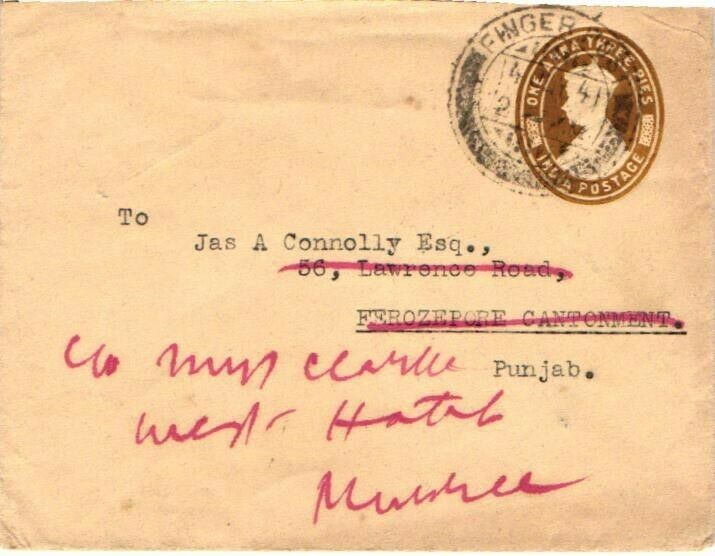 FINGER
ONE ANNA THREE PIES
INDIA POSTAGE
41
To
Jas A Connolly Esq.,
56, Lawrence Road,
FEROZEPORE CANTONMENT.
Punjab.
c/o Mrs Clarke
West Hotel
Murree